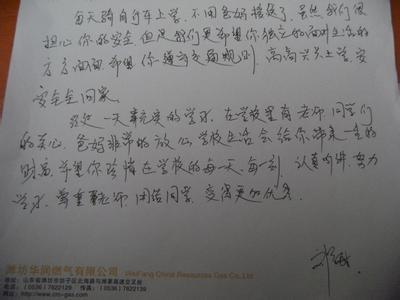 每天骑自行车上学，不用爸妈接送了，虽然我们很
担心你的安全，但是我们更希望你独立的面对生活的
方方面面，希望你遵守交通规则，高高兴兴上学，安
安全全回家。
一天充实的学习，在学校里有老师同学们
的关心，爸妈非常的放心，学校生活会给你带来一生的
财富，希望你珍惜在学校的每一天、每一刻，认真听讲，努力
学习，尊重老师，团结同学，变得更加优秀。
邓
潍坊华润燃气有限公司
WeiFang China Resources Gas Co.,Ltd
地址：山东省潍坊市坊子区北海路与潍莱高速交叉处
电话：(0536) 7622129 传真：(0536) 7622139
http://www.crc-gas.com